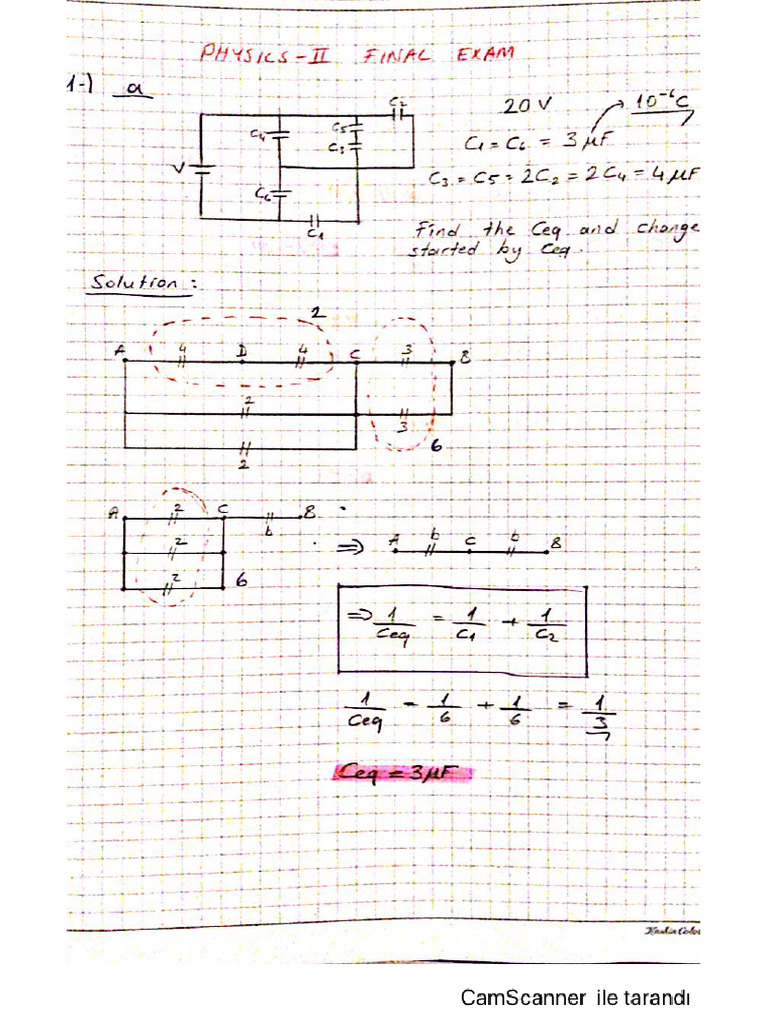 PHYSICS-II FINAL EXAM
1-) a
20 V
10⁻⁶C
C₁ = C₆ = 3 μF
C₃ = C₅ = 2C₂ = 2C₄ = 4 μF
Find the Ceq and change
started by Ceq.
V C₄ C₅ C₃ C₂ C₆ C₁
Solution:
2
A 4 D 4 C 3 B
2
3
2
6
A 2 C 6 B
2
2
6
⇒ A 6 C 6 B
⇒ 1/Ceq = 1/C₁ + 1/C₂
1/Ceq = 1/6 + 1/6 = 1/3
Ceq = 3 μF
CamScanner ile tarandı